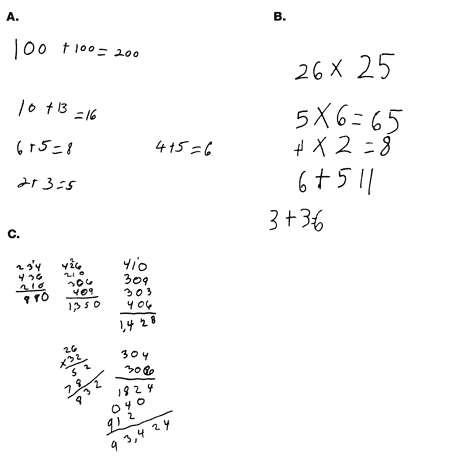 A.
100 + 100 = 200
10 + 13 = 16
6 + 5 = 8
4 + 5 = 6
2 + 3 = 5
B.
26 × 25
5 × 6 = 65
4 × 2 = 8
6 + 5 11
3 + 3 = 6
C.
234
436
210
880
426
210
306
409
1,350
410
309
303
406
1,428
26
× 32
52
78
932
304
306
1824
040
912
93,424